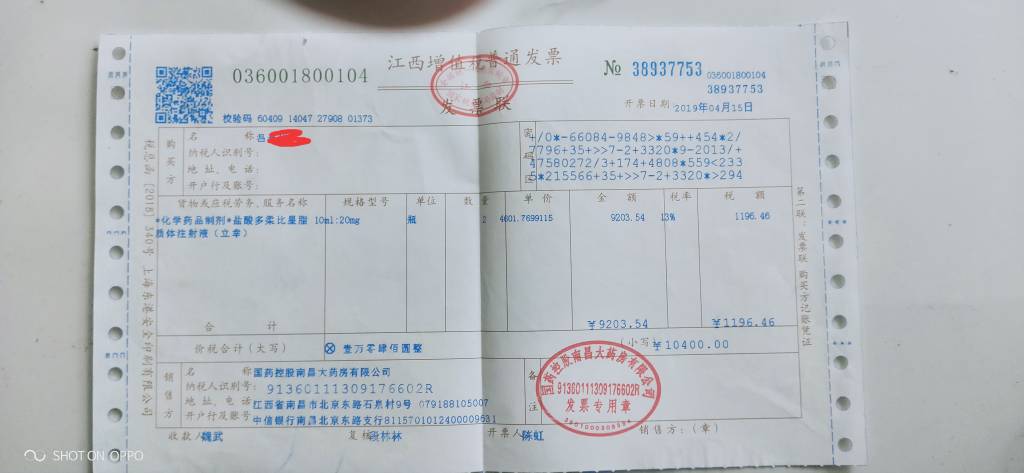 江西增值税普通发票
036001800104
№ 38937753
036001800104
38937753
发票联
开票日期 2019年04月15日
校验码 60409 14047 27908 01373
购买方
名 称
纳税人识别号:
地 址、电 话:
开户行及账号:
密码区
+/0*-66084-9848>*59++454*2/
7796+35+>>7-2+3320*9-2013/+
47580272/3+174+4808*559<233
5*215566+35+>>7-2+3320*>294
货物或应税劳务、服务名称 规格型号 单位 数量 单价 金额 税率 税额
*化学药品制剂*盐酸多柔比星脂 10ml:20mg 瓶 2 4601.7699115 9203.54 13% 1196.46
质体注射液（立幸）
合 计 ￥9203.54 ￥1196.46
价税合计（大写） ⊗ 壹万零肆佰圆整 （小写）￥10400.00
销售方
名 称:国药控股南昌大药房有限公司
纳税人识别号:91360111309176602R
地 址、电 话:江西省南昌市北京东路石泉村9号 079188105007
开户行及账号:中信银行南昌北京东路支行8115701012400009631
备注
国药控股南昌大药房有限公司
91360111309176602R
发票专用章
收款人 魏武 复核 段林林 开票人 陈虹 销售方：（章）
第二联：发票联 购买方记账凭证
税总函［2018］340号 上海东港安全印刷有限公司
SHOT ON OPPO